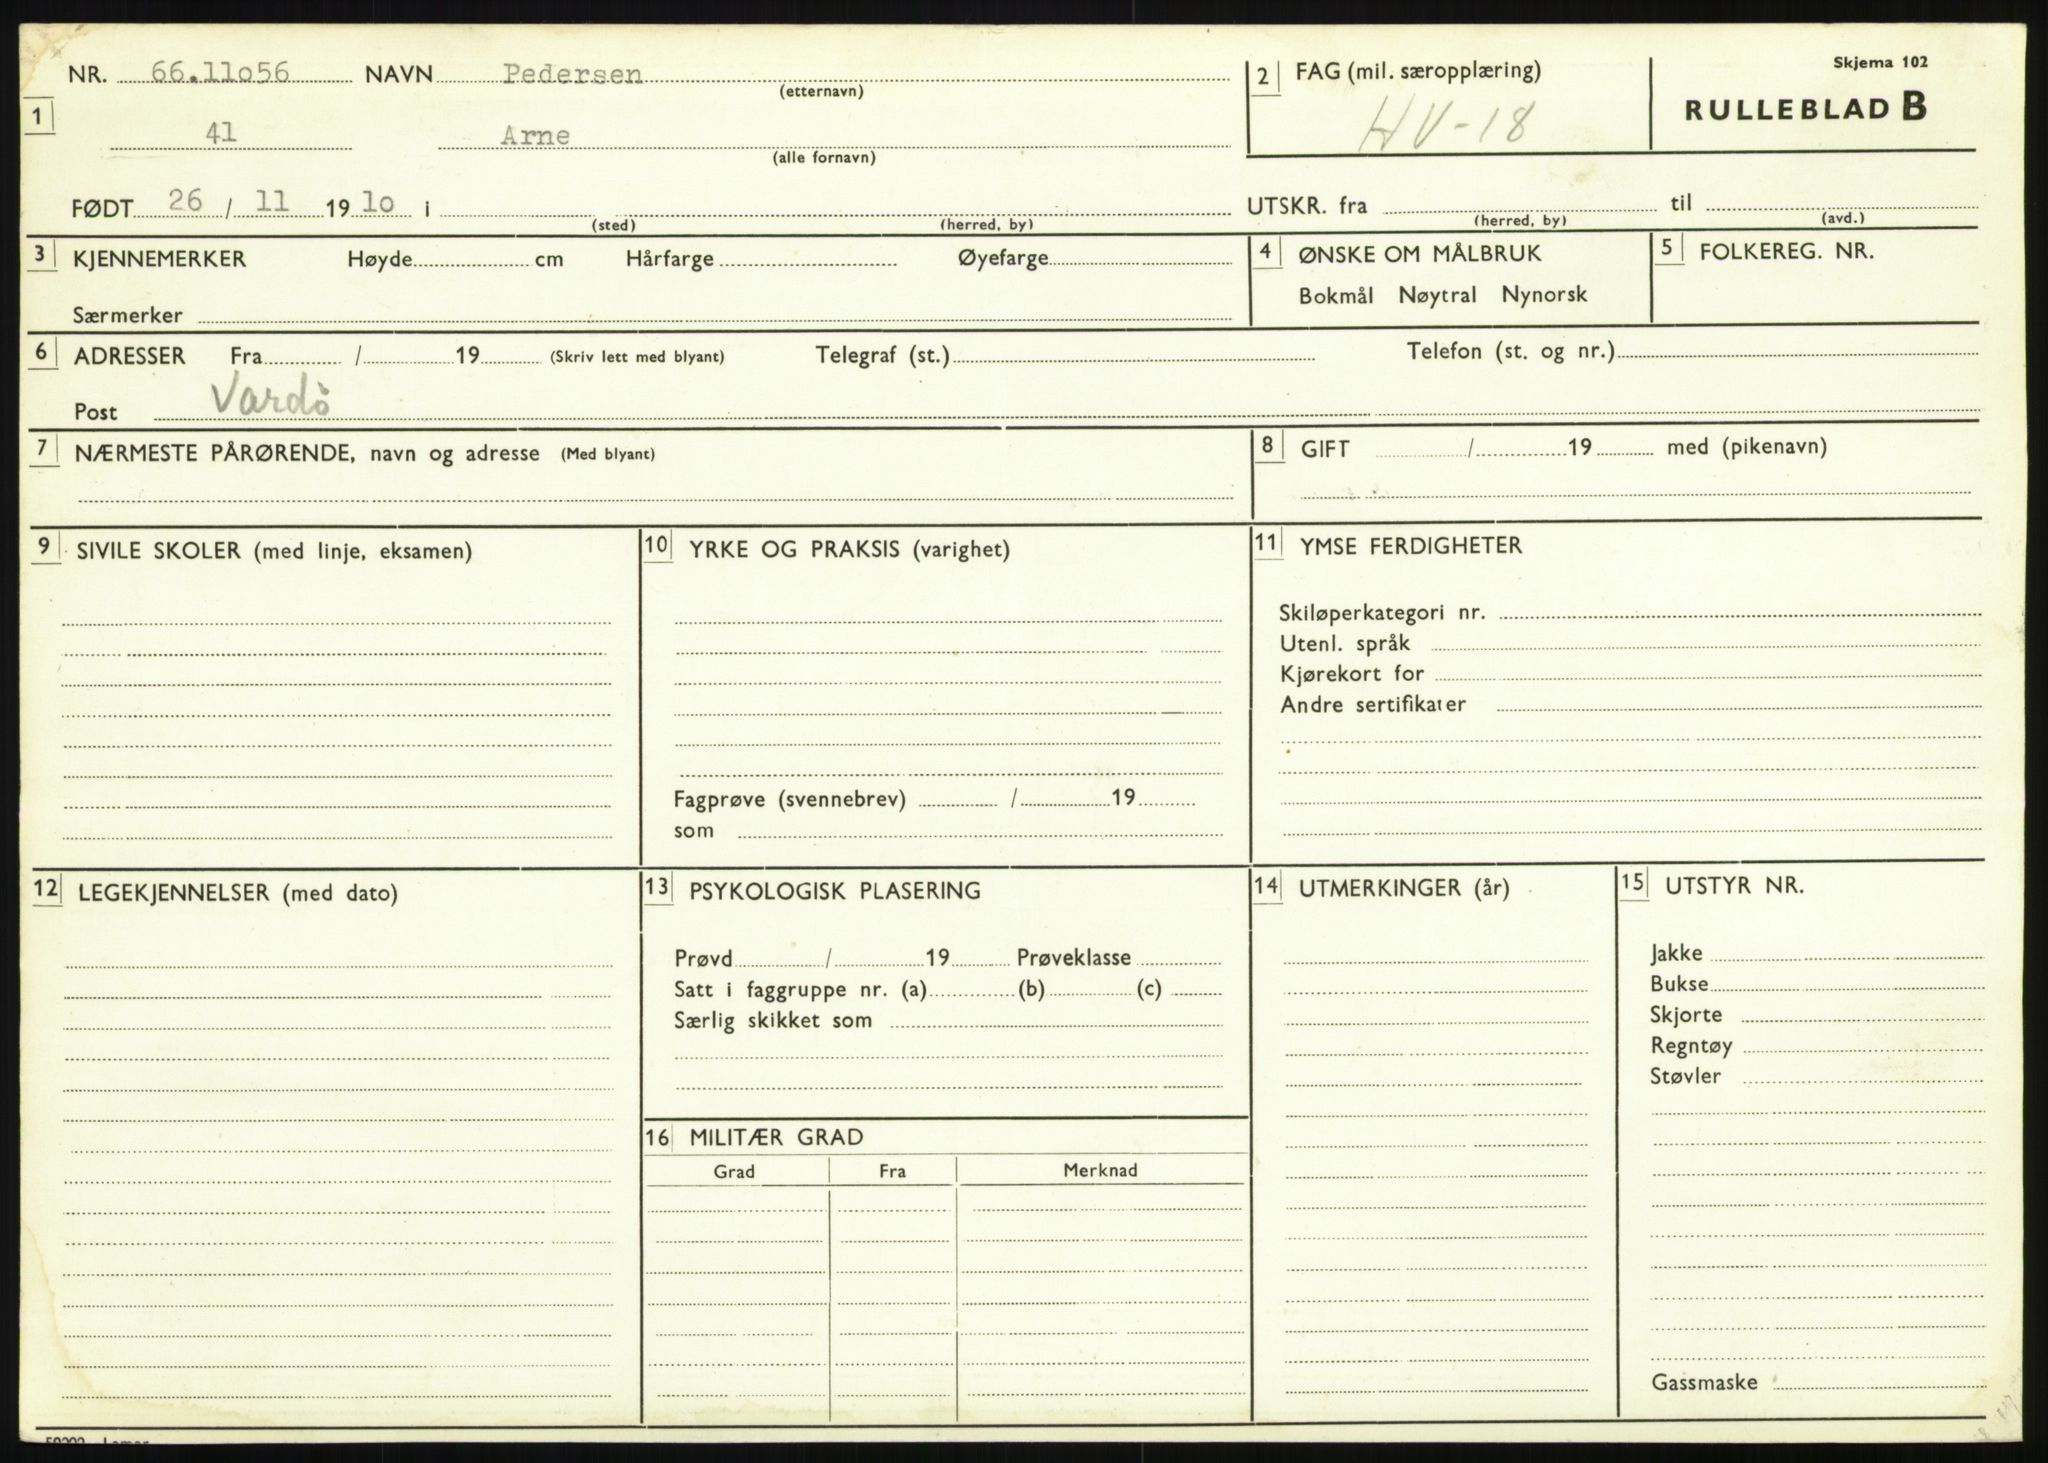 NR. 66.11o56 NAVN Pedersen Skjema 102
(etternavn)
1 41 Arne
(alle fornavn)
2 FAG (mil. særopplæring) RULLEBLAD B
HV-18
FØDT 26 / 11 19 1o i UTSKR. fra til
(sted) (herred, by) (herred, by) (avd.)
3 KJENNEMERKER Høyde cm Hårfarge Øyefarge
Særmerker
4 ØNSKE OM MÅLBRUK
Bokmål Nøytral Nynorsk
5 FOLKEREG. NR.
6 ADRESSER Fra / 19 (Skriv lett med blyant) Telegraf (st.) Telefon (st. og nr.)
Post Vardö
7 NÆRMESTE PÅRØRENDE, navn og adresse (Med blyant)
8 GIFT / 19 med (pikenavn)
9 SIVILE SKOLER (med linje, eksamen)
10 YRKE OG PRAKSIS (varighet)
Fagprøve (svennebrev) / 19
som
11 YMSE FERDIGHETER
Skiløperkategori nr.
Utenl. språk
Kjørekort for
Andre sertifikater
12 LEGEKJENNELSER (med dato)
13 PSYKOLOGISK PLASERING
Prøvd / 19 Prøveklasse
Satt i faggruppe nr. (a) (b) (c)
Særlig skikket som
14 UTMERKINGER (år)
15 UTSTYR NR.
Jakke
Bukse
Skjorte
Regntøy
Støvler
Gassmaske
16 MILITÆR GRAD
Grad Fra Merknad